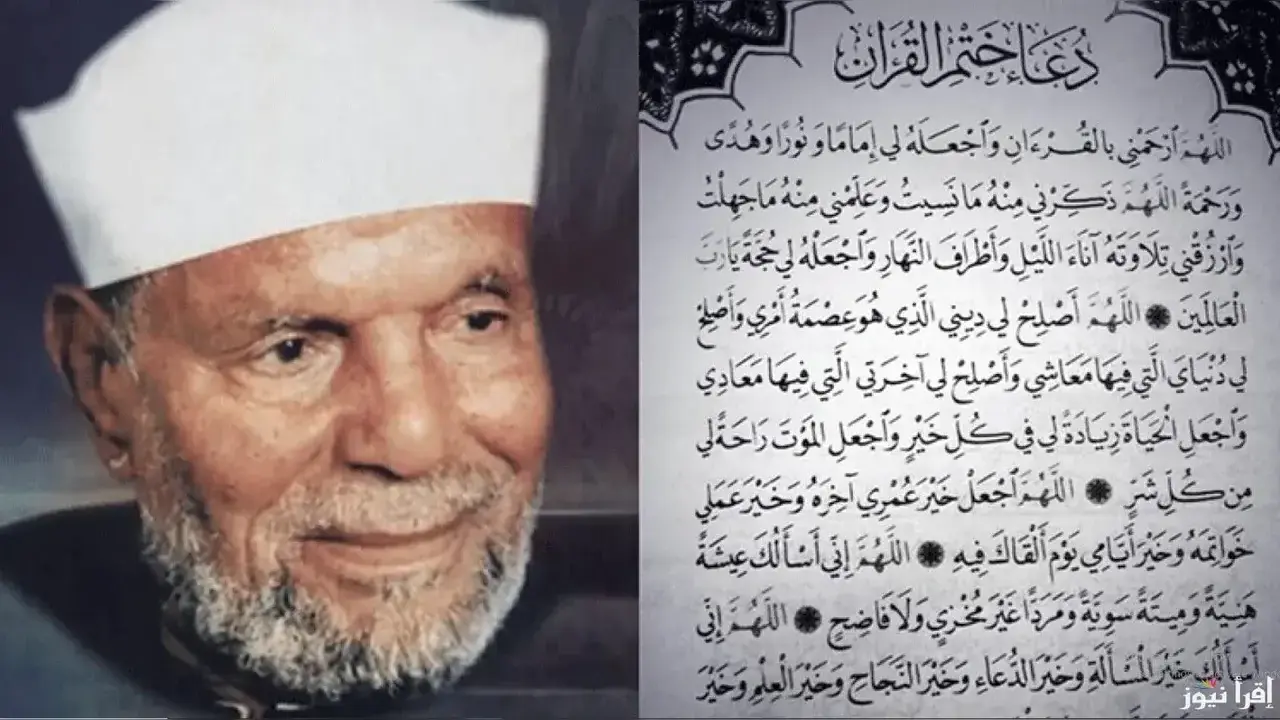 دُعَاءُ خَتْمِ الْقُرْآنِ
اللَّهُمَّ ٱرْحَمْنِي بالقُرْءَانِ وَٱجْعَلهُ لي إِمَامًا وَنُورًا وَهُدًى
وَرَحْمَةً اللَّهُمَّ ذَكِّرْنِي مِنْهُ مَا نَسِيتُ وَعَلِّمْنِي مِنْهُ مَا جَهِلْتُ
وَٱرْزُقْنِي تِلَاوَتَهُ آنَاءَ اللَّيْلِ وَأَطْرَافَ النَّهَارِ وَٱجْعَلْهُ لِي حُجَّةً يَارَبَّ
الْعَالَمِينَ ۞ اللَّهُمَّ أَصْلِحْ لِي دِينِي الَّذِي هُوَ عِصْمَةُ أَمْرِي وَأَصْلِحْ
لِي دُنْيَايَ الَّتِي فِيهَا مَعَاشِي وَأَصْلِحْ لِي آخِرَتِي الَّتِي فِيهَا مَعَادِي
وَٱجْعَلِ الْحَيَاةَ زِيَادَةً لِي فِي كُلِّ خَيْرٍ وَٱجْعَلِ الْمَوْتَ رَاحَةً لِي
مِن كُلِّ شَرٍّ ۞ اللَّهُمَّ ٱجْعَلْ خَيْرَ عُمْرِي آخِرَهُ وَخَيْرَ عَمَلِي
خَوَاتِمَهُ وَخَيْرَ أَيَّامِي يَوْمَ أَلْقَاكَ فِيهِ ۞ اللَّهُمَّ إِنِّي أَسْأَلُكَ عِيشَةً
هَنِيَّةً وَمِيتَةً سَوِيَّةً وَمَرَدًّا غَيْرَ مُخْزِيٍ وَلَا فَاضِحٍ ۞ اللَّهُمَّ إِنِّي
أَسْأَلُكَ خَيْرَ الْمَسْأَلَةِ وَخَيْرَ الدُّعَاءِ وَخَيْرَ النَّجَاحِ وَخَيْرَ الْعِلْمِ وَخَيْرَ
إقرأ نيوز